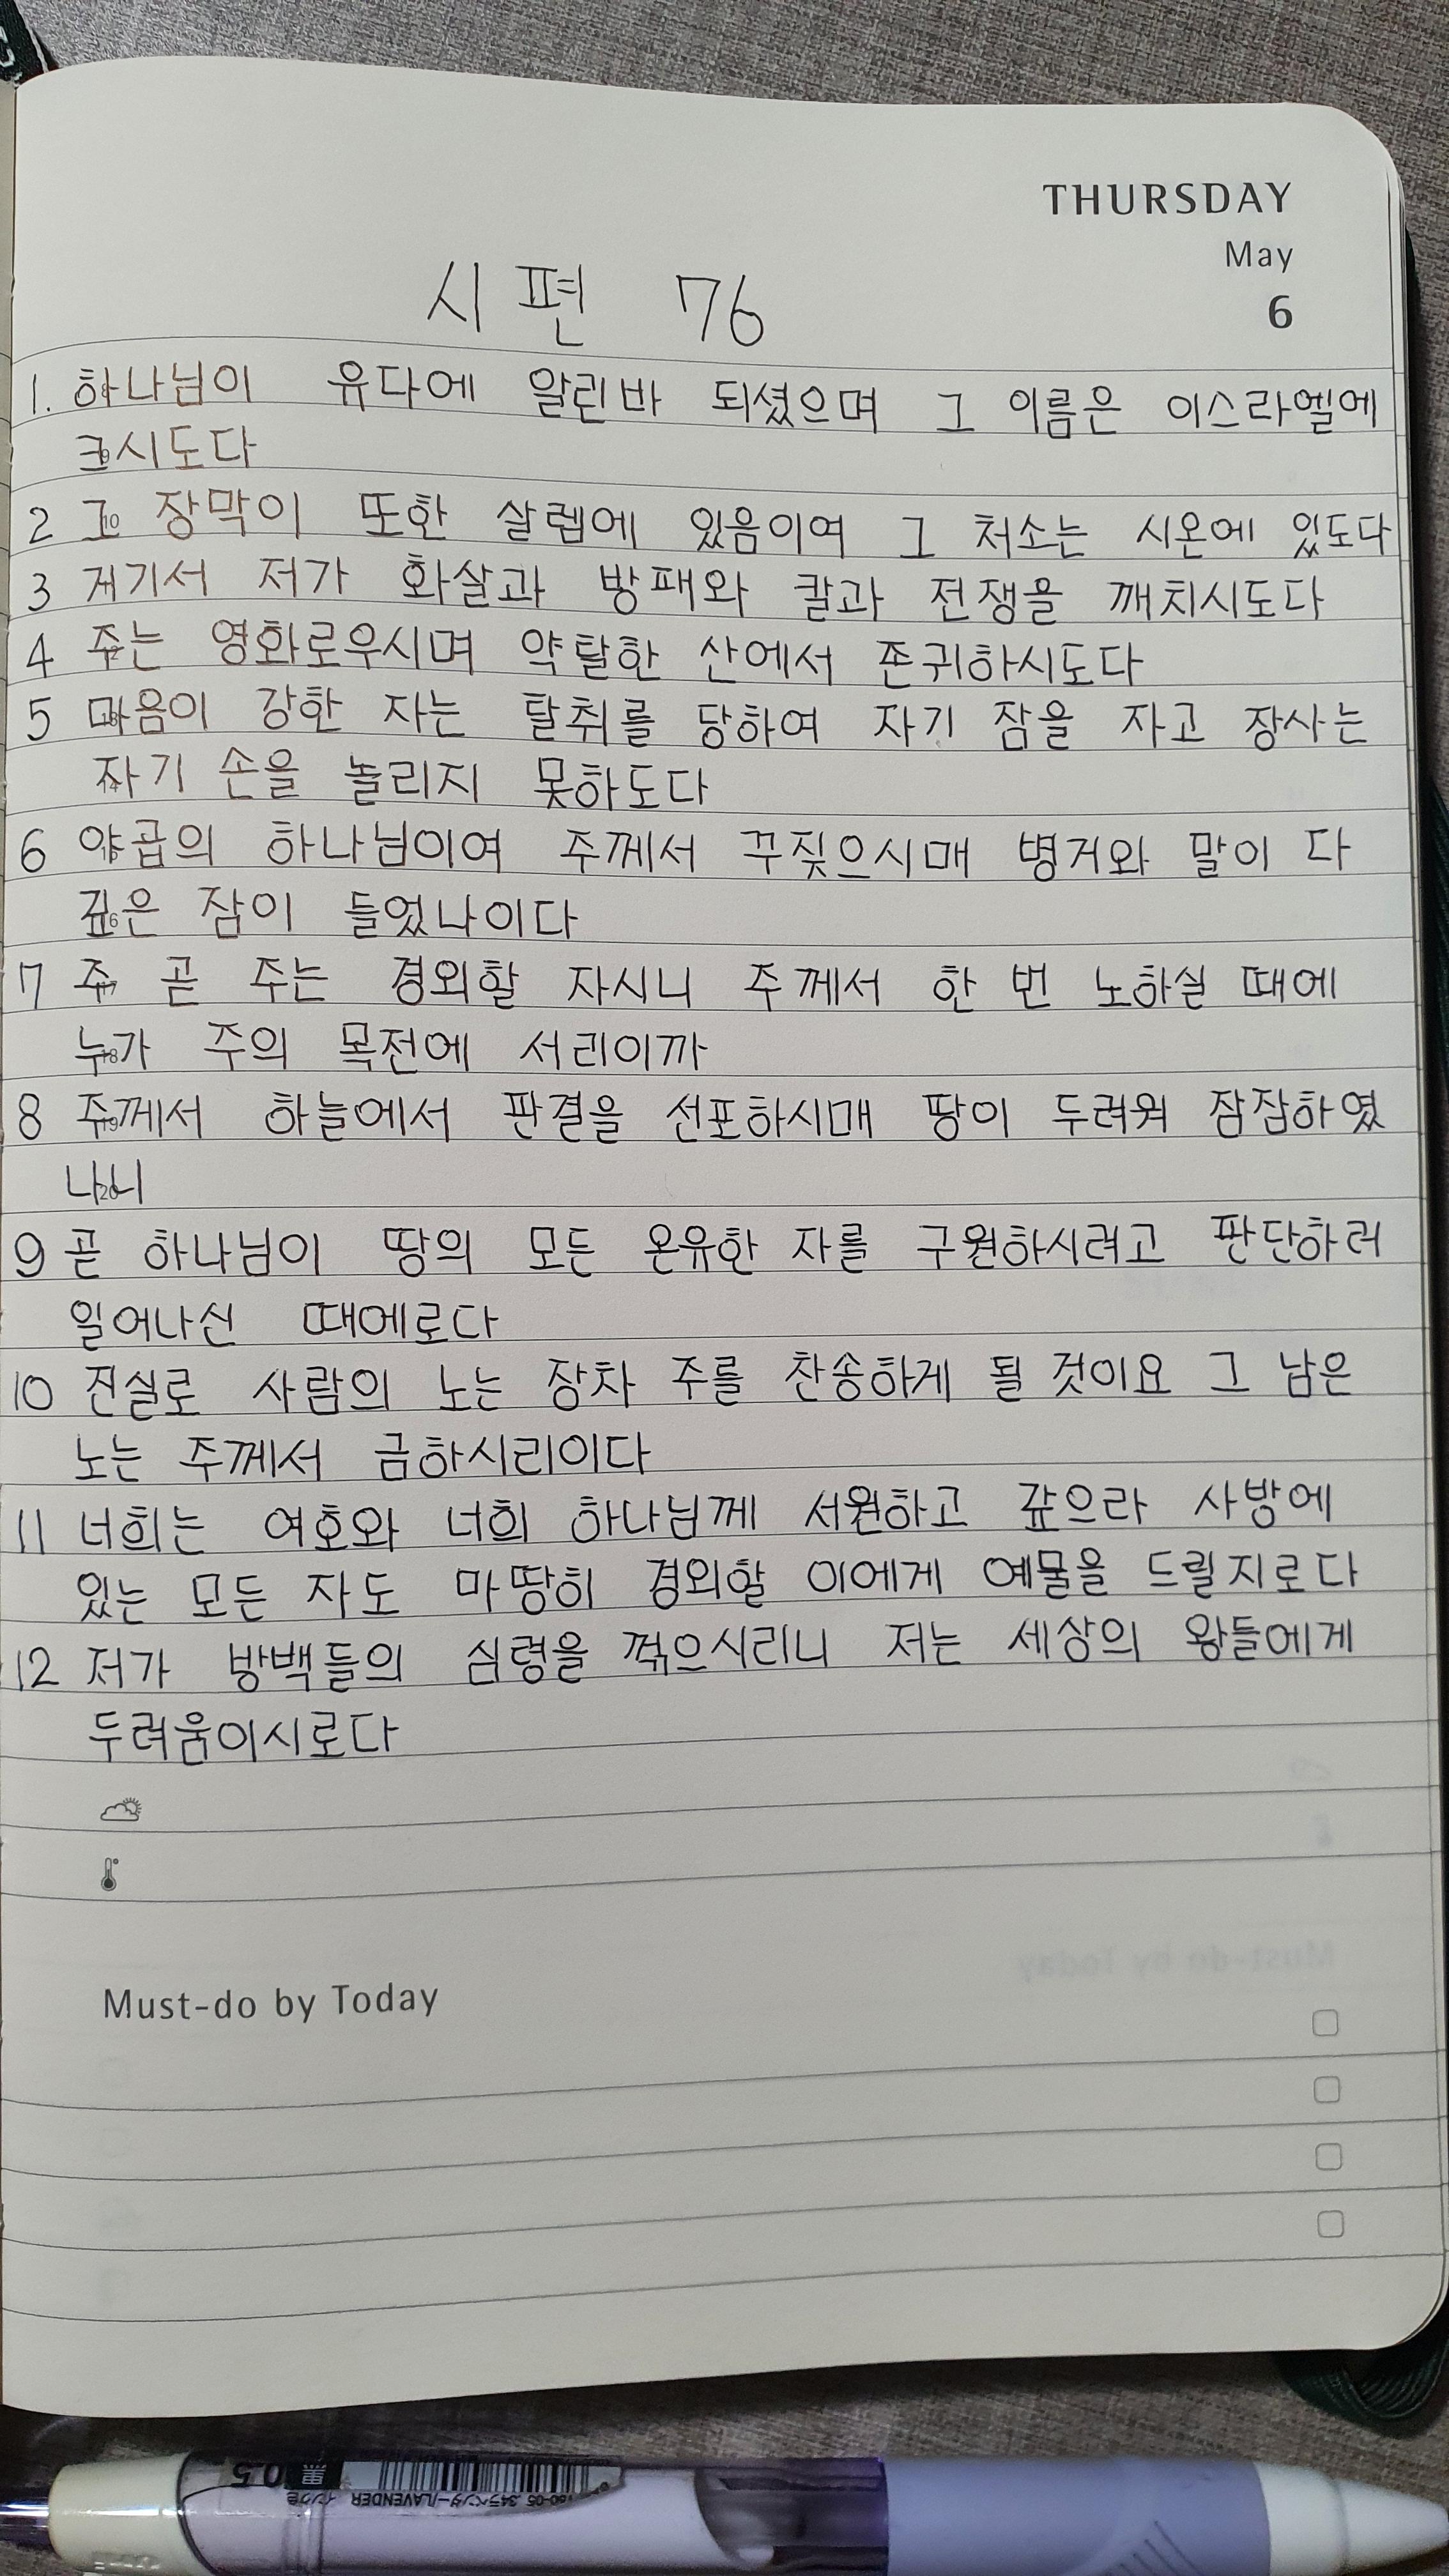 THURSDAY
May
6
시편 76
1. 하나님이 유다에 알린바 되셨으며 그 이름은 이스라엘에
크시도다
2 그 장막이 또한 살렘에 있음이여 그 처소는 시온에 있도다
3 거기서 저가 화살과 방패와 칼과 전쟁을 깨치시도다
4 주는 영화로우시며 약탈한 산에서 존귀하시도다
5 마음이 강한 자는 탈취를 당하여 자기 잠을 자고 장사는
자기 손을 놀리지 못하도다
6 야곱의 하나님이여 주께서 꾸짖으시매 병거와 말이 다
깊은 잠이 들었나이다
7 주 곧 주는 경외할 자시니 주께서 한 번 노하실 때에
누가 주의 목전에 서리이까
8 주께서 하늘에서 판결을 선포하시매 땅이 두려워 잠잠하였
나니
9 곧 하나님이 땅의 모든 온유한 자를 구원하시려고 판단하러
일어나신 때에로다
10 진실로 사람의 노는 장차 주를 찬송하게 될 것이요 그 남은
노는 주께서 금하시리이다
11 너희는 여호와 너희 하나님께 서원하고 갚으라 사방에
있는 모든 자도 마땅히 경외할 이에게 예물을 드릴지로다
12 저가 방백들의 심령을 꺾으시리니 저는 세상의 왕들에게
두려움이시로다
Must-do by Today
0.5 黒